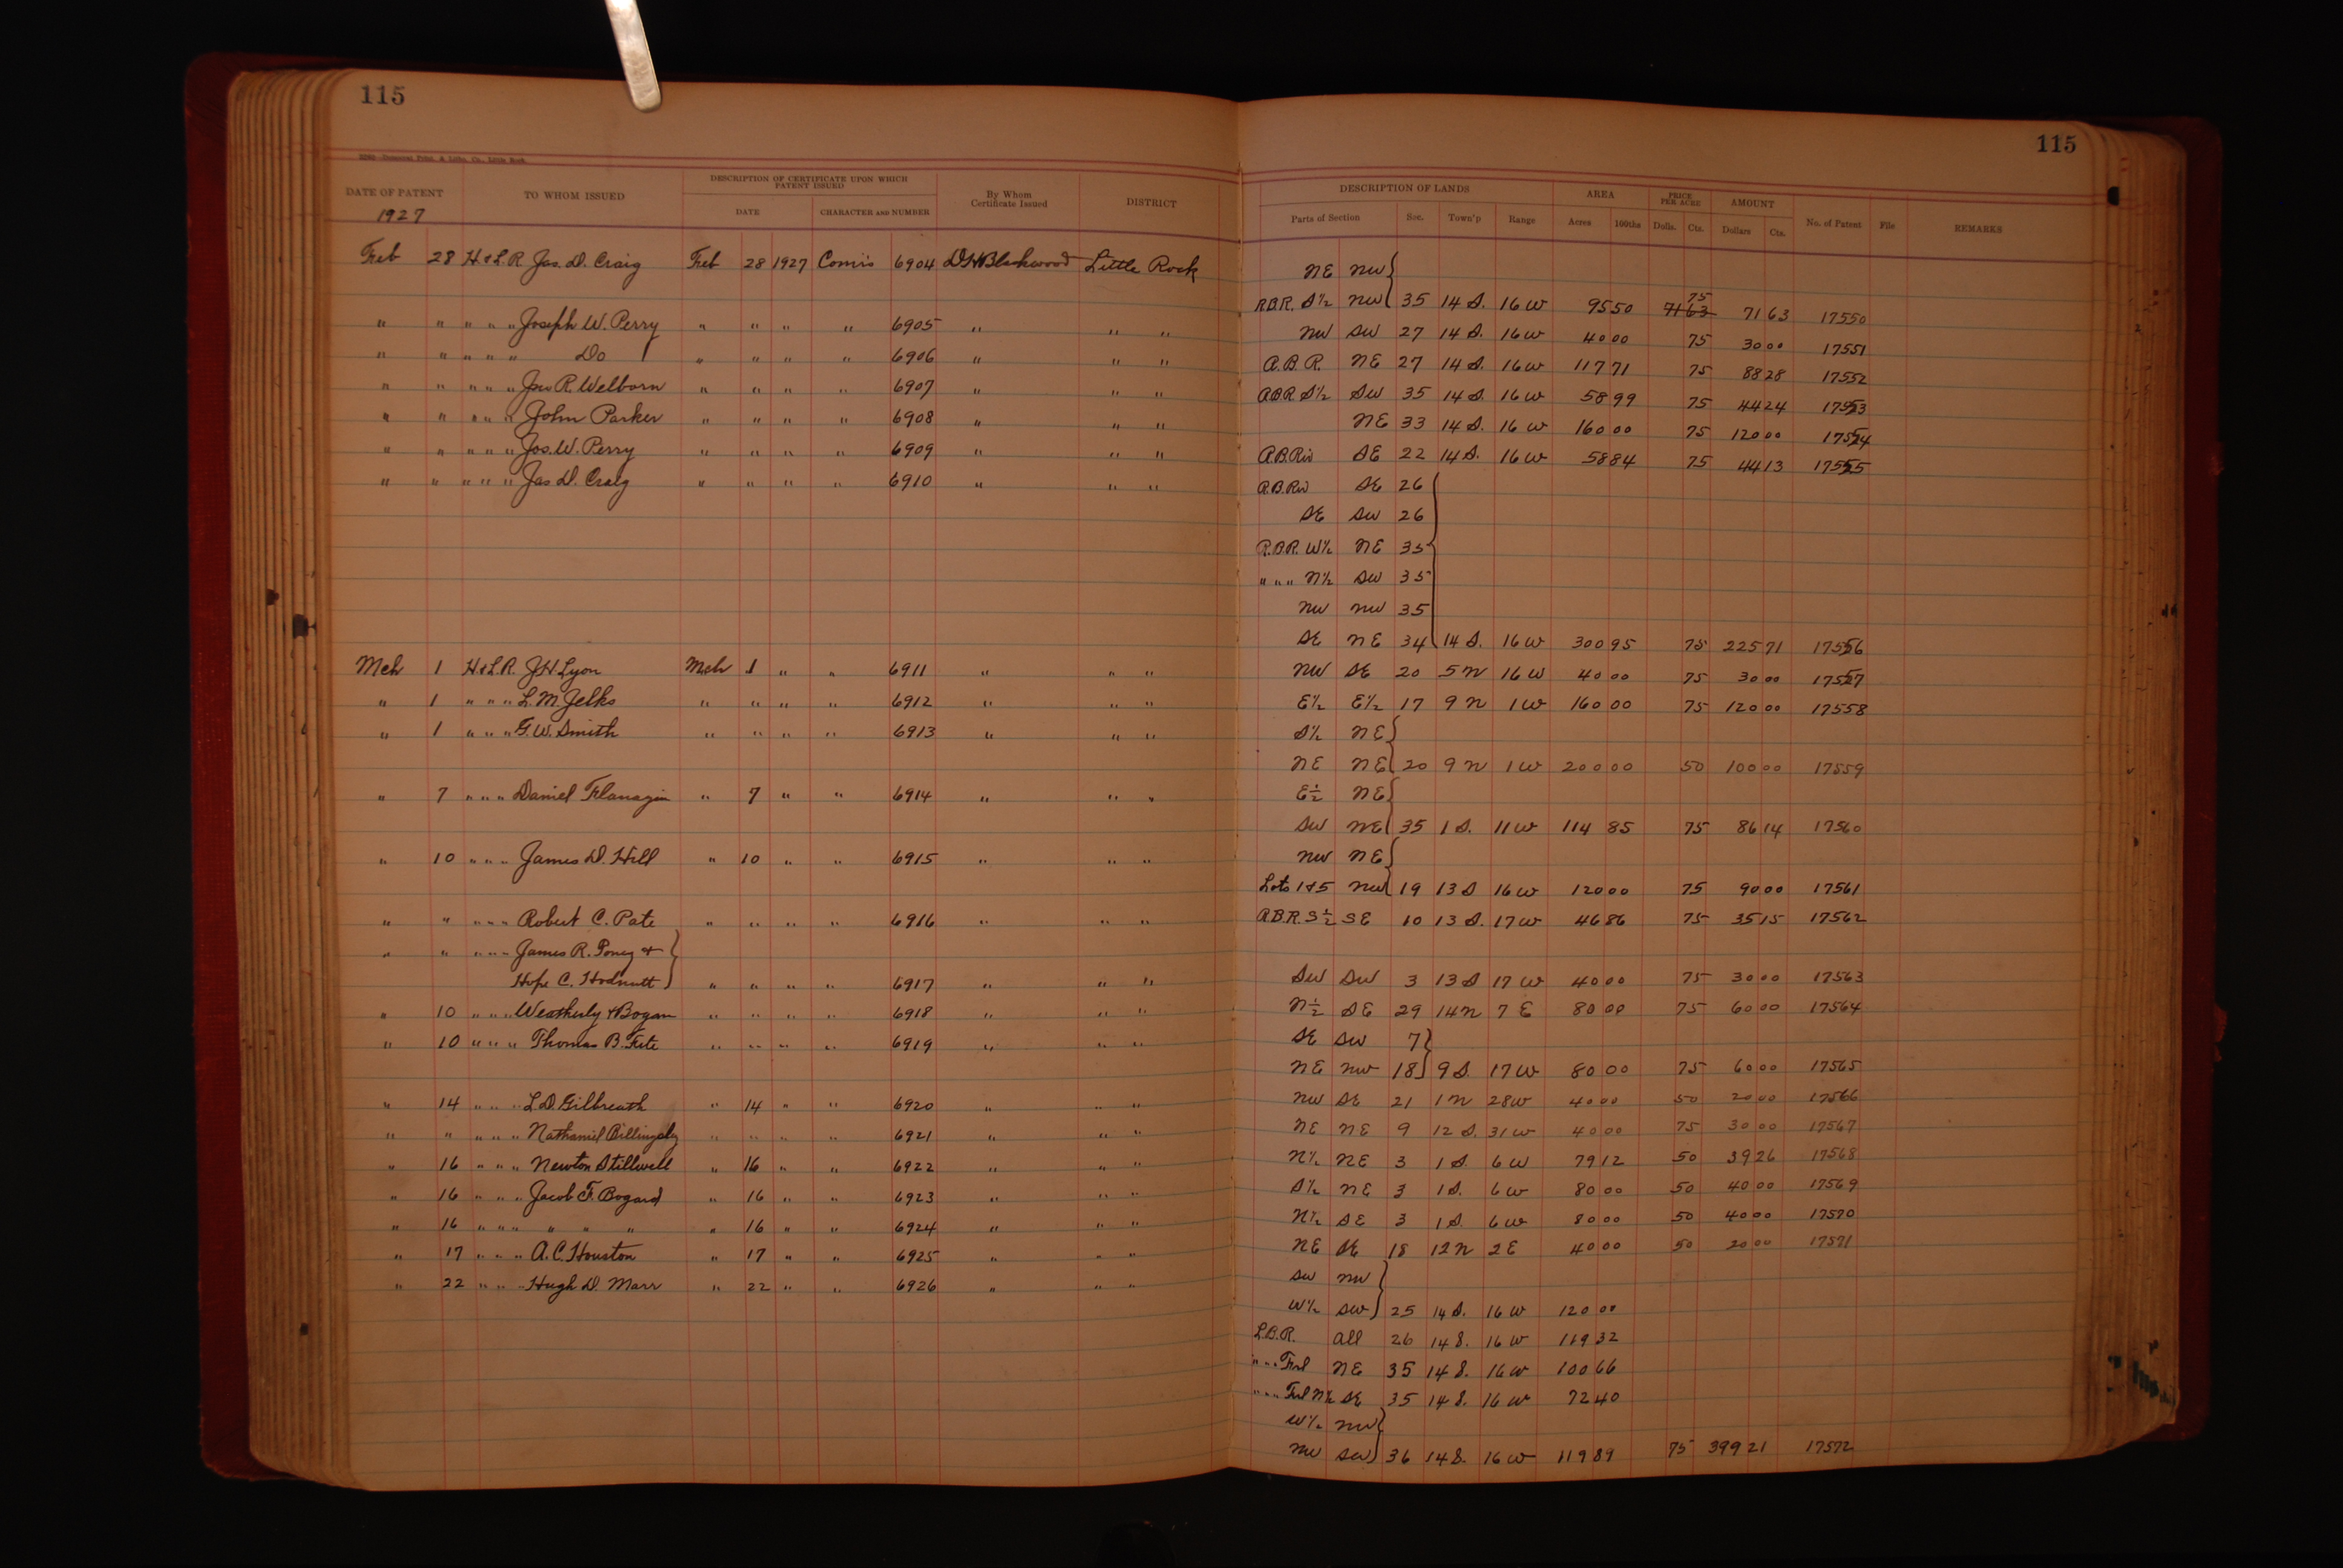 115
115
DATE OF PATENT TO WHOM ISSUED DESCRIPTION OF CERTIFICATE UPON WHICH PATENT ISSUED By Whom Certificate Issued DISTRICT DESCRIPTION OF LANDS AREA PRICE PER ACRE AMOUNT No. of Patent File REMARKS
1927 DATE CHARACTER AND NUMBER Parts of Section Sec. Town'p Range Acres 100ths Dolls. Cts. Dollars Cts.
Feb 28 H & L.R. Jas. D. Craig Feb 28 1927 Com'rs 6904 D.H. Blackwood Little Rock NE NW
R.B.R. S½ NW 35 14 S. 16 W 95 50 75 71 63 71 63 17550
" " " " " Joseph W. Perry " " " " 6905 " " " NW SW 27 14 S. 16 W 40 00 75 30 00 17551
" " " " " Do " " " " 6906 " " " A.B.R. NE 27 14 S. 16 W 117 71 75 88 28 17552
" " " " " Jno R. Welborn " " " " 6907 " " " A.B.R. S½ SW 35 14 S. 16 W 58 99 75 44 24 17553
" " " " " John Parker " " " " 6908 " " " NE 33 14 S. 16 W 160 00 75 120 00 17554
" " " " " Jos. W. Perry " " " " 6909 " " " A.B.Riv SE 22 14 S. 16 W 58 84 75 44 13 17555
" " " " " Jas D. Craig " " " " 6910 " " " R.B.Riv SE 26
SE SW 26
R.B.R. W½ NE 35
" " " N½ SW 35
NW NW 35
SE NE 34 14 S. 16 W 300 95 75 225 71 17556
Mch 1 H & L.R. J H Lyon Mch 1 " " 6911 " " " NW SE 20 5 N 16 W 40 00 75 30 00 17557
" 1 " " " L. M. Jelks " " " " 6912 " " " E½ E½ 17 9 N 1 W 160 00 75 120 00 17558
" 1 " " " G. W. Smith " " " " 6913 " " " S½ NE
NE NE 20 9 N 1 W 200 00 50 100 00 17559
" 7 " " " Daniel Flanagin " 7 " " 6914 " " " E½ NE
SW NE 35 1 S. 11 W 114 85 75 86 14 17560
" 10 " " " James D. Hill " 10 " " 6915 " " " NW NE
Lots 1 & 5 NW 19 13 S 16 W 120 00 75 90 00 17561
" " " " " Robert C. Pate " " " " 6916 " " " R.B.R. S½ SE 10 13 S. 17 W 46 86 75 35 15 17562
" " " " " James R. &
Hope C. Hodnutt " " " " 6917 " " " SW SW 3 13 S 17 W 40 00 75 30 00 17563
" 10 " " " Weatherly & Bogan " " " " 6918 " " " N½ SE 29 14 N 7 E 80 00 75 60 00 17564
" 10 " " " Thomas B. Fite " " " " 6919 " " " SE SW 7
NE NW 18 9 S. 17 W 80 00 75 60 00 17565
" 14 " " " L. D. Gilbreath " 14 " " 6920 " " " NW SE 21 1 N 28 W 40 00 50 20 00 17566
" " " " " Nathaniel Billingsly " " " " 6921 " " " NE NE 9 12 S. 31 W 40 00 75 30 00 17567
" 16 " " " Newton Stillwell " 16 " " 6922 " " " N½ NE 3 1 S. 6 W 79 12 50 39 26 17568
" 16 " " " Jacob F. Bogard " 16 " " 6923 " " " S½ NE 3 1 S. 6 W 80 00 50 40 00 17569
" 16 " " " " " " " 16 " " 6924 " " " N½ SE 3 1 S. 6 W 80 00 50 40 00 17570
" 17 " " " A. C. Houston " 17 " " 6925 " " " NE SE 18 12 N 2 E 40 00 50 20 00 17571
" 22 " " " Hugh D. Marr " 22 " " 6926 " " " SW NW
W½ SW 25 14 S. 16 W 120 00
L.B.R. All 26 14 S. 16 W 119 32
" " " Frl NE 35 14 S. 16 W 100 66
" " " Frl N½ SE 35 14 S. 16 W 72 40
W½ NW
NW SW 36 14 S. 16 W 119 89 75 399 21 17572